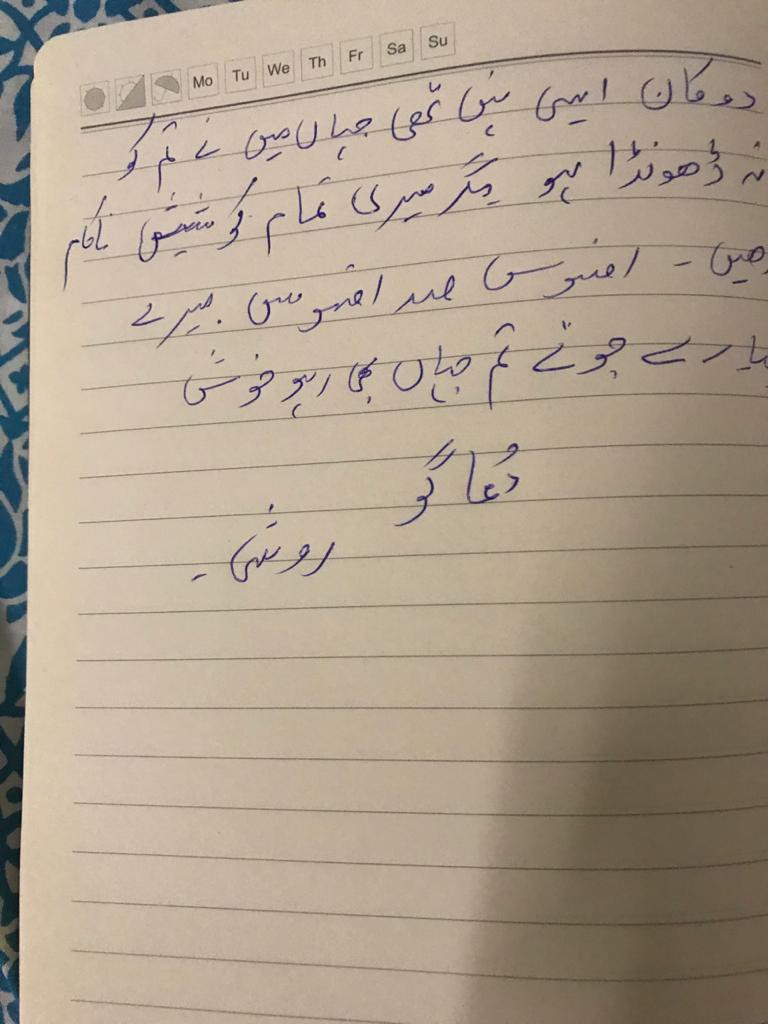 Mo Tu We Th Fr Sa Su
دوکان ایسی نہیں تھی جہاں میں نے تم کو
نہ ڈھونڈا ہو مگر میری تمام کوششیں ناکام
رھیں - افسوس صد افسوس میرے
پیارے جوتے تم جہاں بھی رہو خوش
دُعا گو
روشنی -